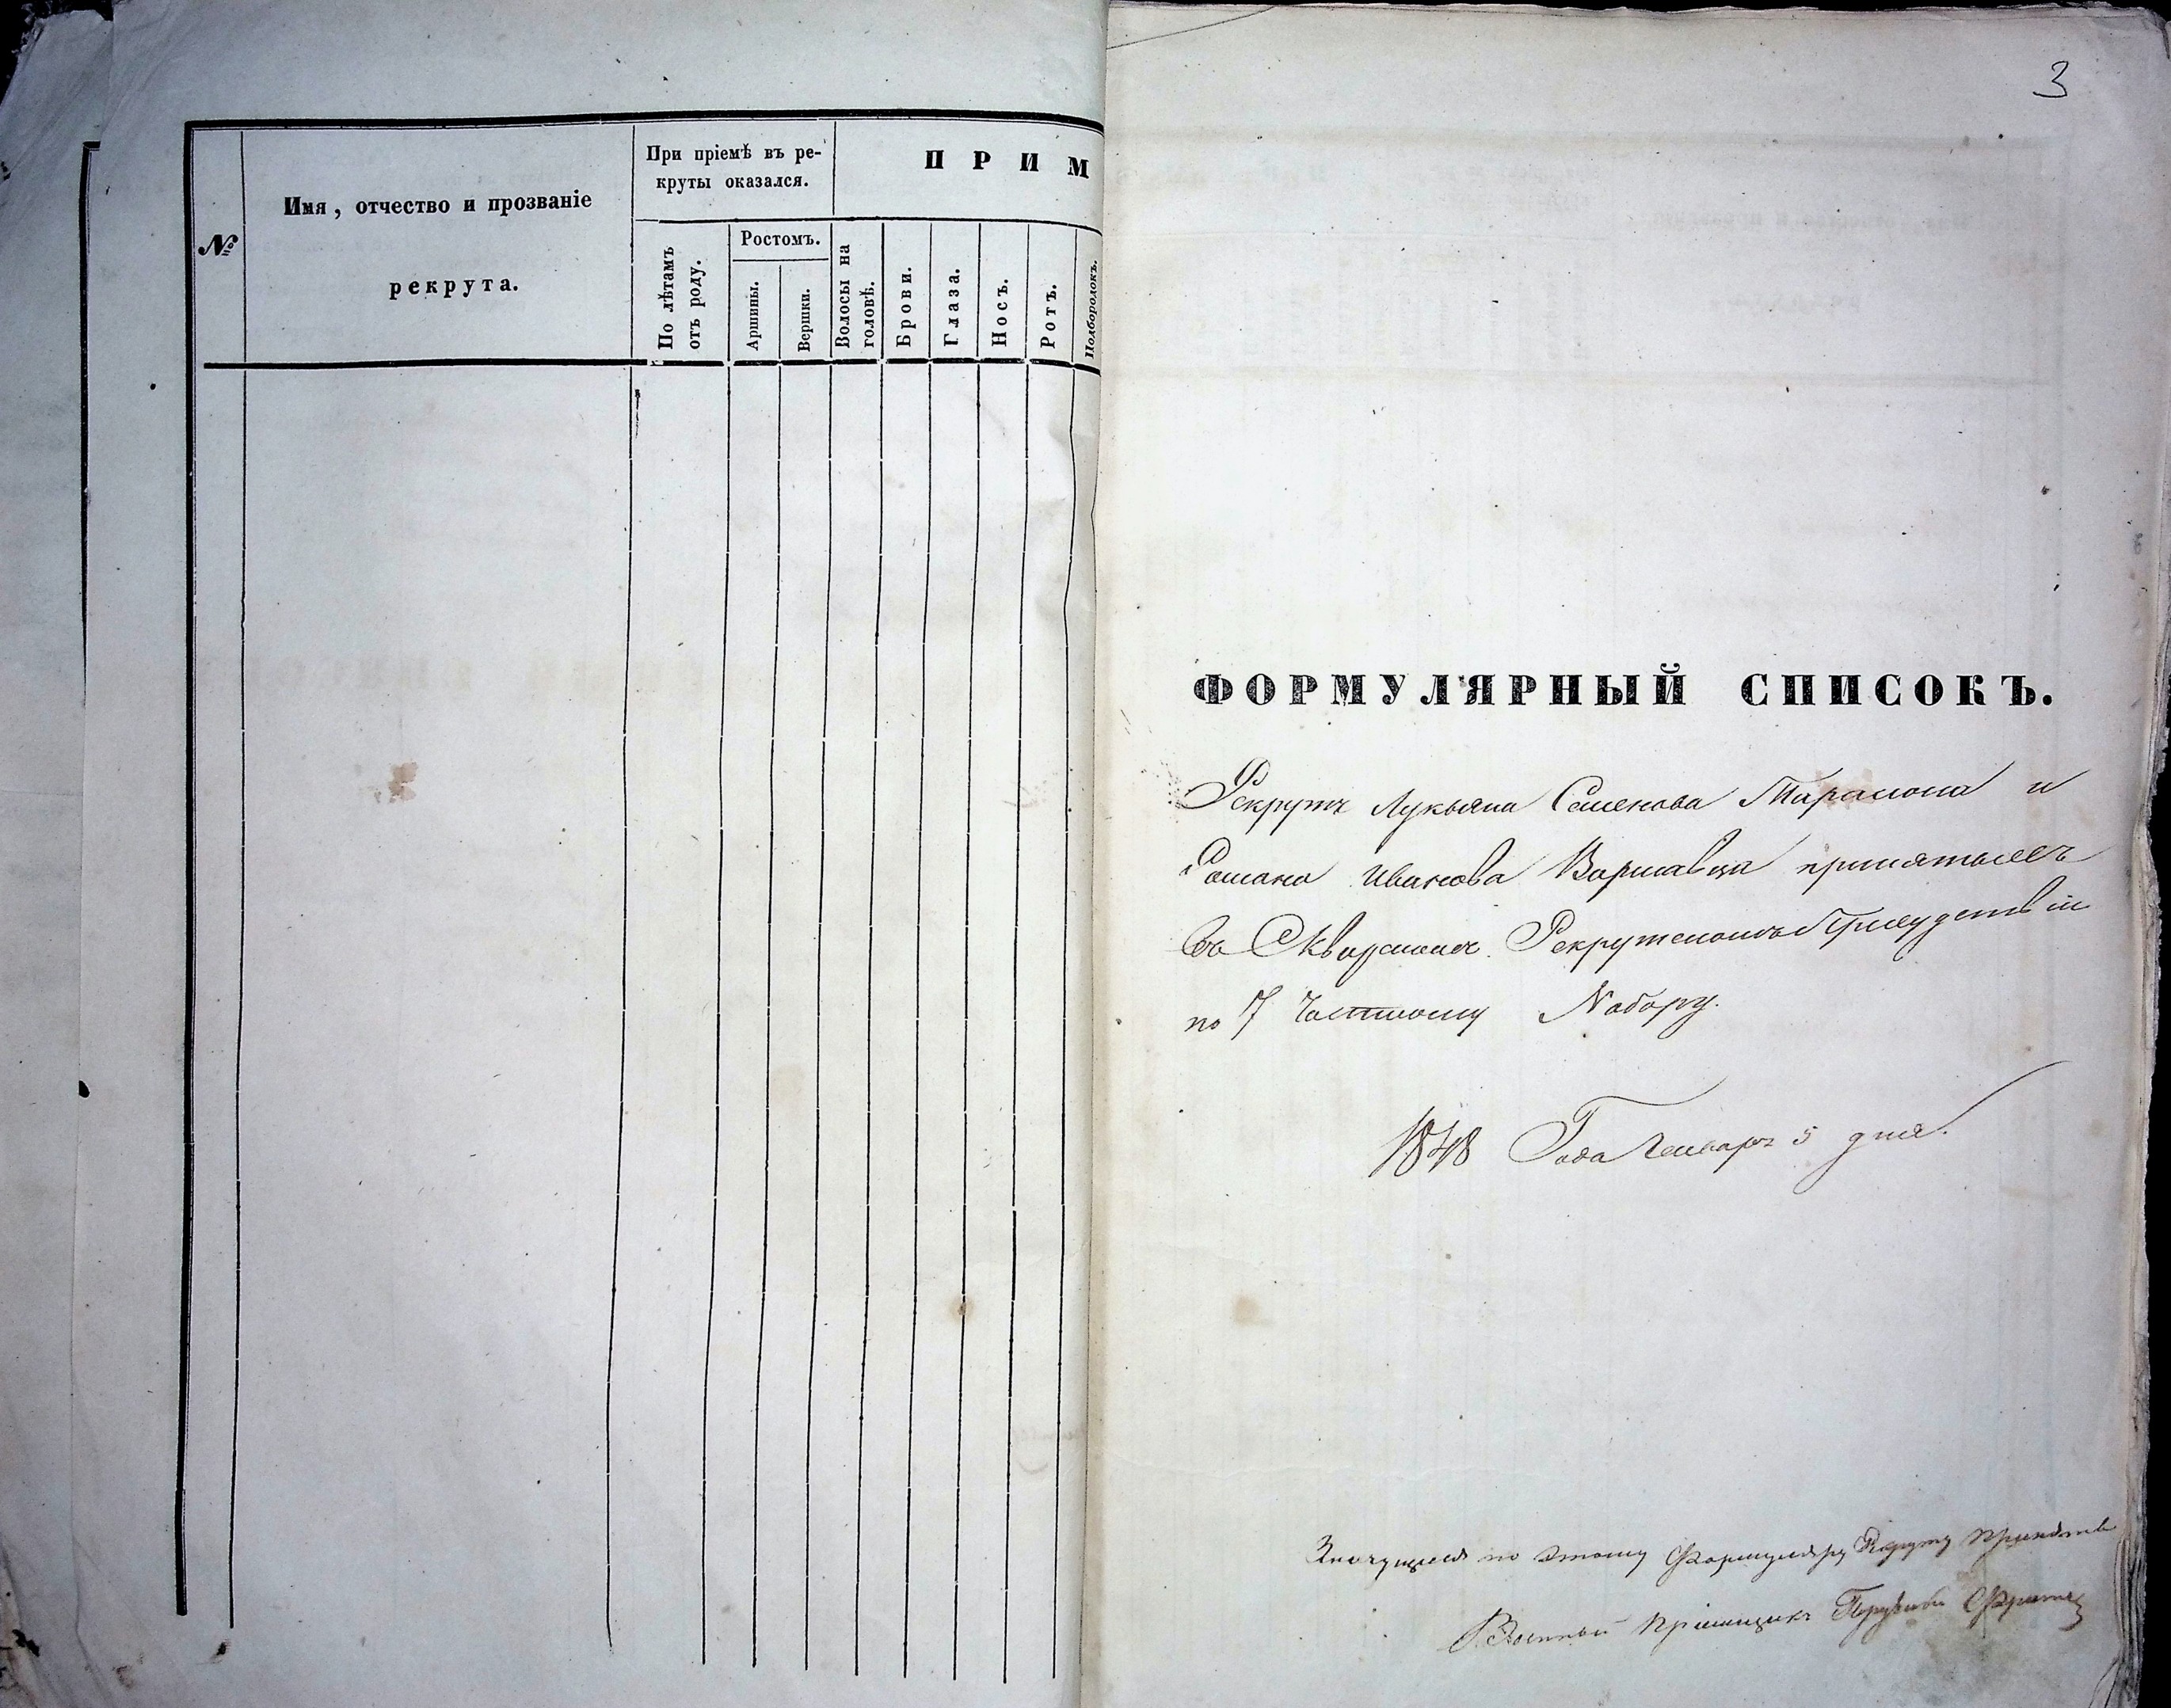 №
Имя, отчество и прозваніе
рекрута.
При пріемѣ въ ре-
круты оказался.
По лѣтамъ
отъ роду.
Ростомъ.
Аршины.
Вершки.
ПРИМ
Волосы на
головѣ.
Брови.
Глаза.
Носъ.
Ротъ.
Подбородокъ.
3
ФОРМУЛЯРНЫЙ СПИСОКЪ.
Рекрутъ Лукьяна Семенова и
Романа Иванова принятыхъ
въ Сквирскомъ Рекрутскомъ Присудствіи
по 7 Частному Набору.
1848 Года Генваря 5 дня.
по этому Формуляру Рекрутъ
Военный Пріемщикъ